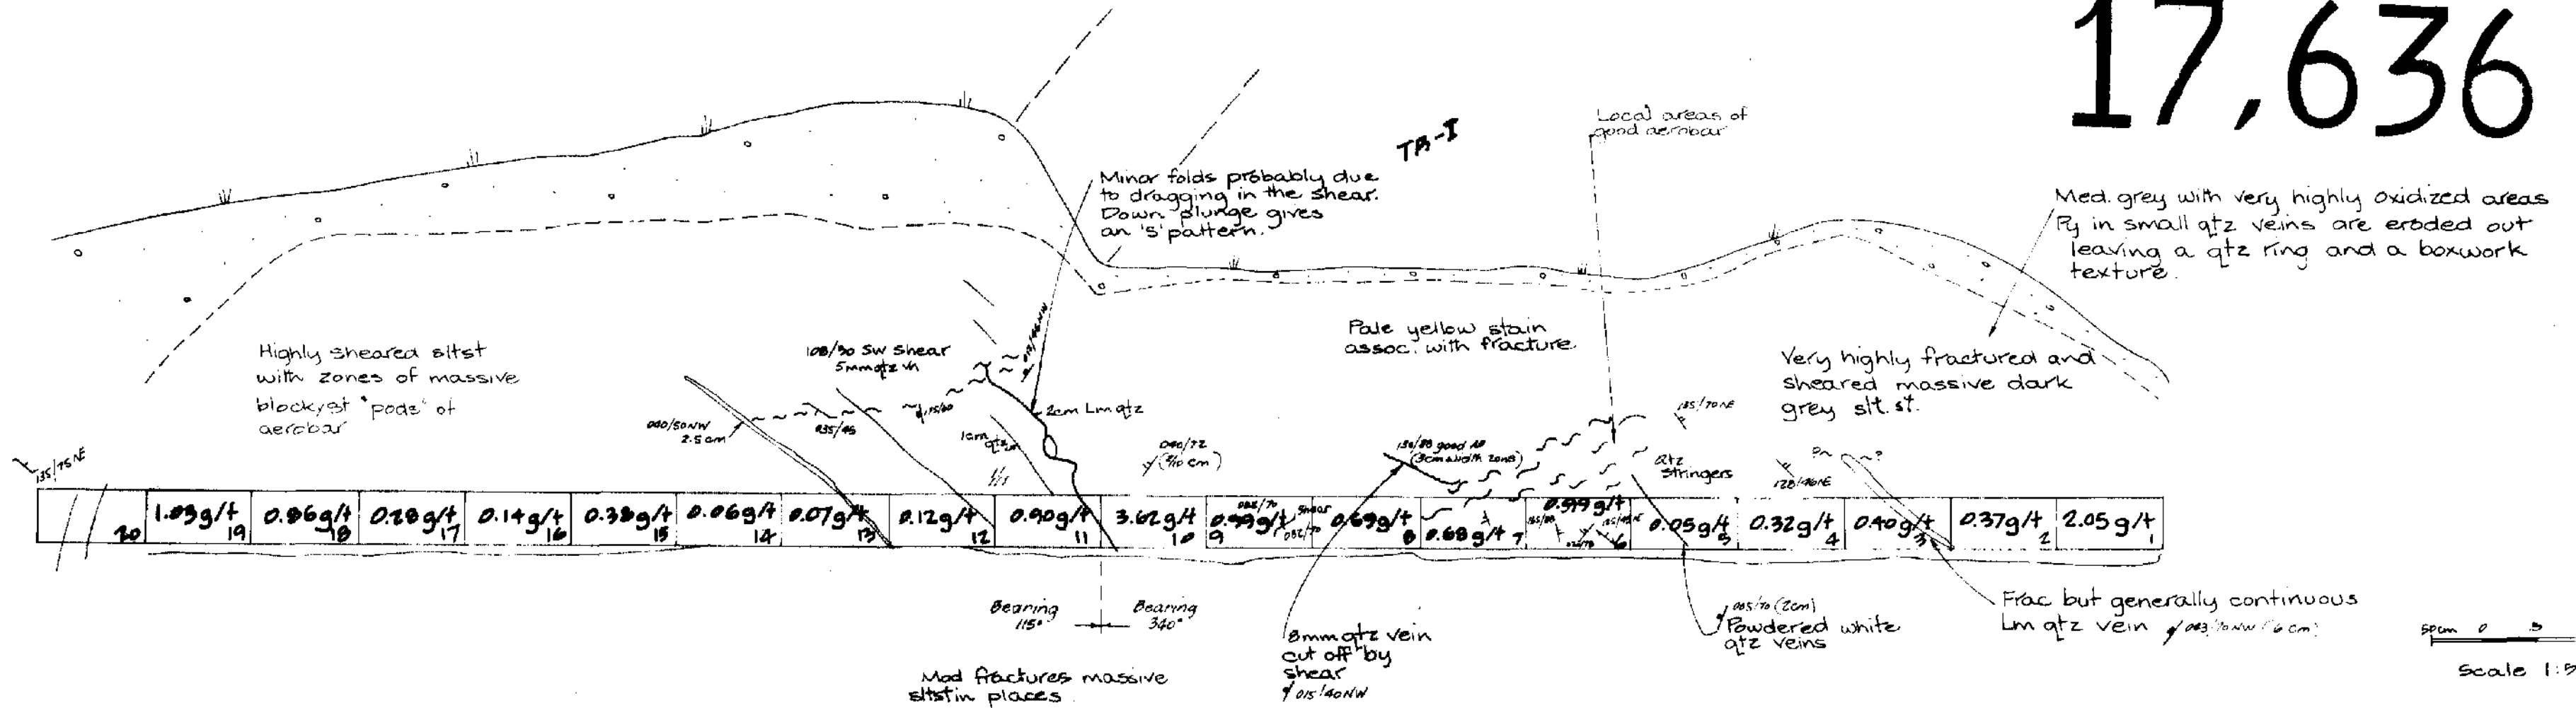 17,636
TR-I
Local areas of
good aerobar
Minor folds probably due
to dragging in the shear.
Down plunge gives
an 'S' pattern.
Med. grey with very highly oxidized areas
Py in small qtz veins are eroded out
leaving a qtz ring and a boxwork
texture.
Highly sheared sltst
with zones of massive
blocky st 'pods' of
aerobar
108/50 SW Shear
5mm qtz vn
Pale yellow stain
assoc. with fracture
Very highly fractured and
sheared massive dark
grey slt. st.
040/50NW
2.5cm
035/45
115/80
2cm Lm qtz
1cm
qtz
040/72
(3/10 cm)
good
(3cm width zone)
135/70NE
Qtz
stringers
120/46NE
?
135/75NE
20
1.03g/t
19
0.86g/t
18
0.28g/t
17
0.14g/t
16
0.38g/t
15
0.06g/t
14
0.07g/t
13
0.12g/t
12
0.90g/t
11
3.62g/t
10
082/70
0.99g/t
Shear
082/70
9
0.69g/t
8
0.68g/t 7
g/t
6
0.05g/t
5
0.32g/t
4
0.40g/t
3
0.37g/t
2
2.05g/t
1
Bearing
115°
Bearing
340°
Mod fractures massive
sltst in places
8mm qtz vein
cut off by
shear
015/40NW
005/70 (2cm)
Powdered white
qtz veins
Frac but generally continuous
Lm qtz vein 043/70NW (6cm)
50cm 0 5
Scale 1:5